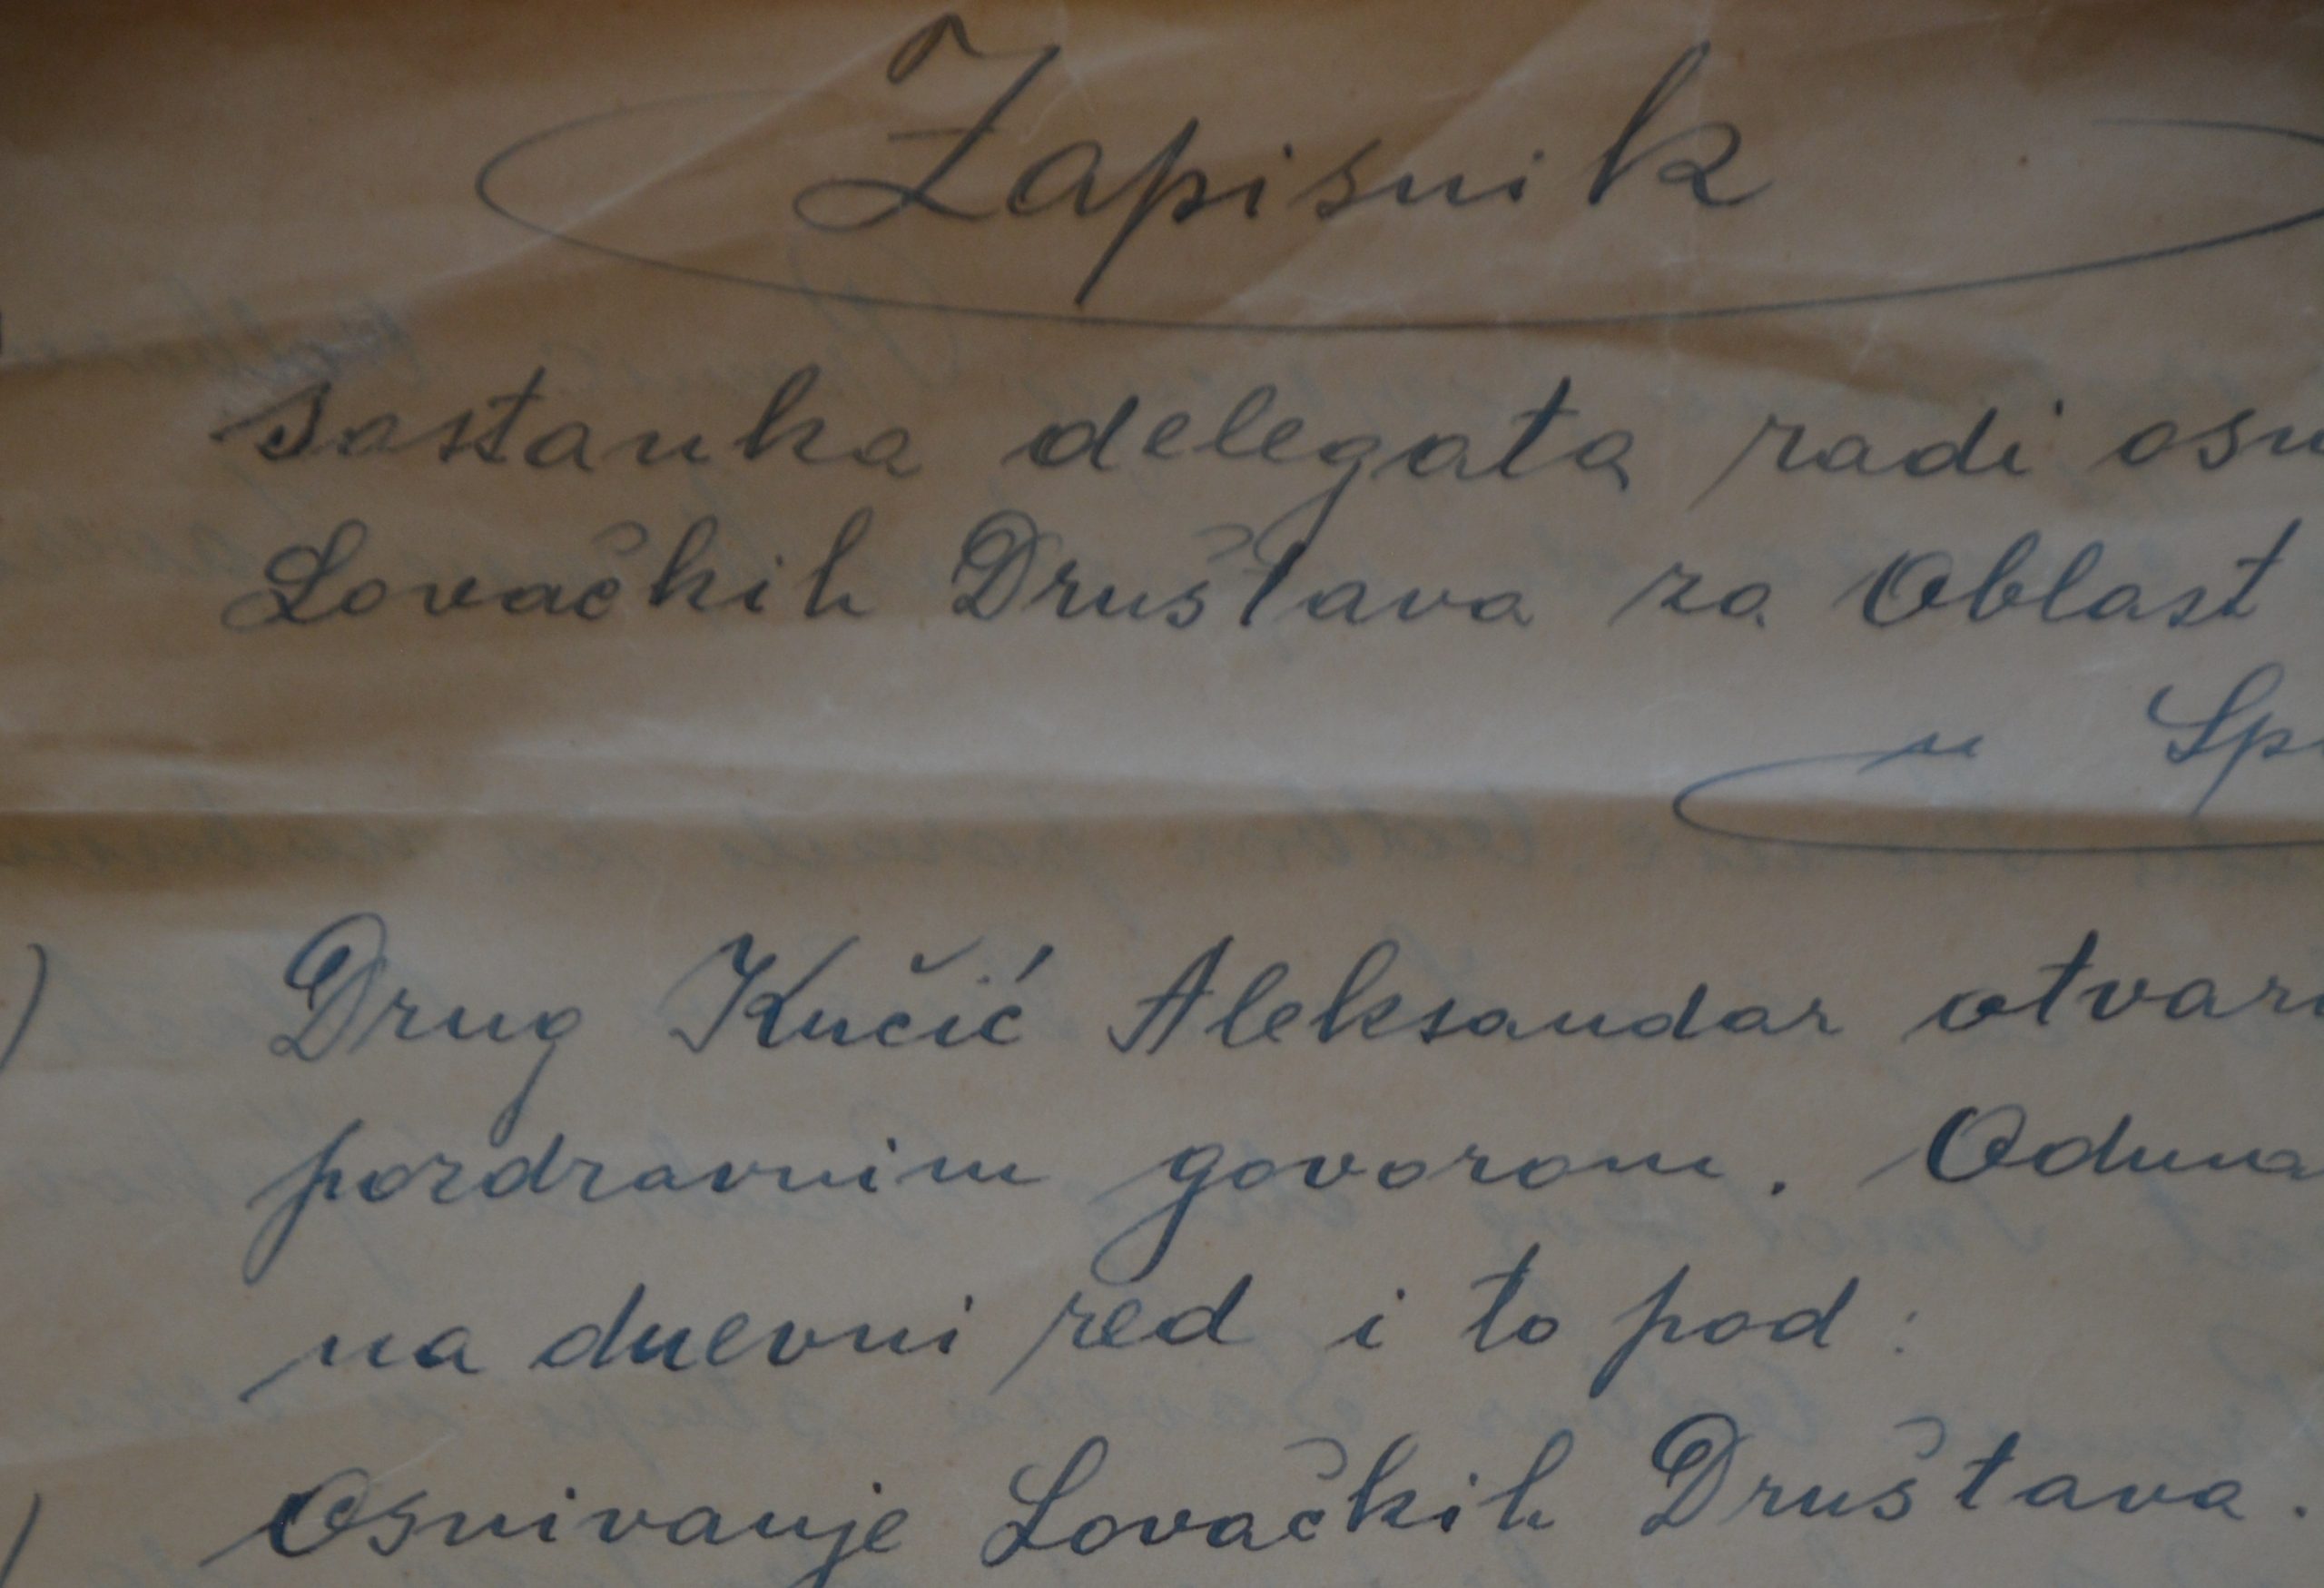 Zapisnik
Sastanka delegata radi osn
Lovačkih Društava za Oblast
u Sp
) Drug Kučić Aleksandar otvara
pozdravnim govorom. Odma
na dnevni red i to pod:
) Osnivanje Lovačkih Društava.